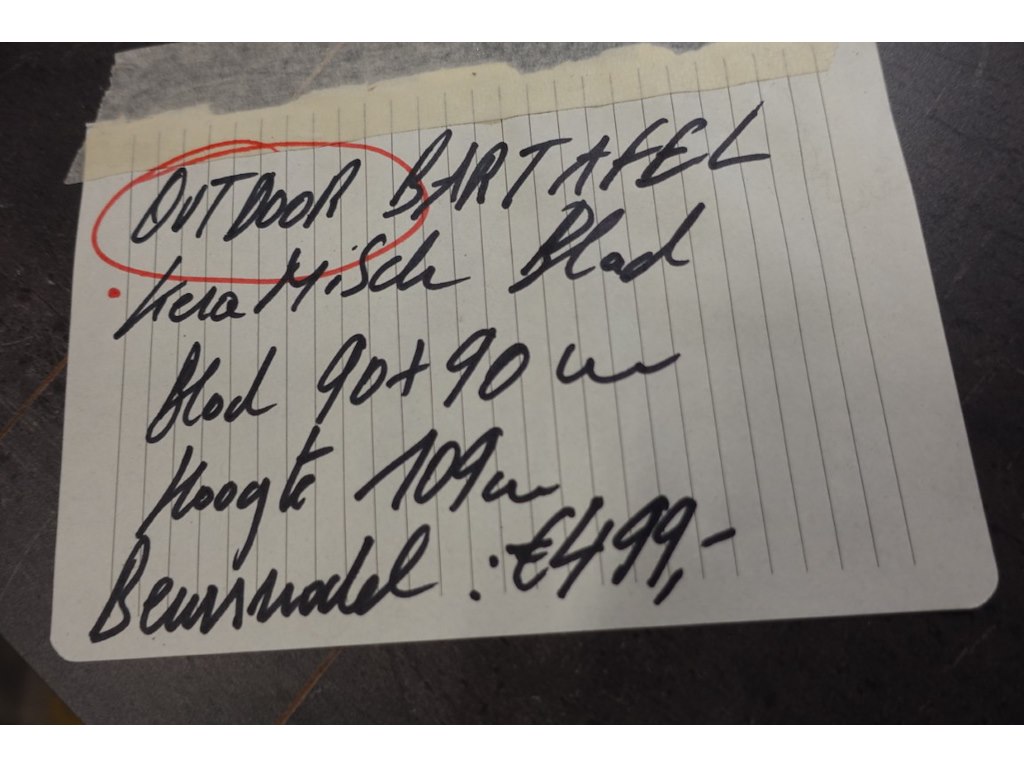 OUTDOOR BARTAFEL
KeraMisch Blad
Blad 90+90 cm
Hoogte 109 cm
Beursmodel : €499,-